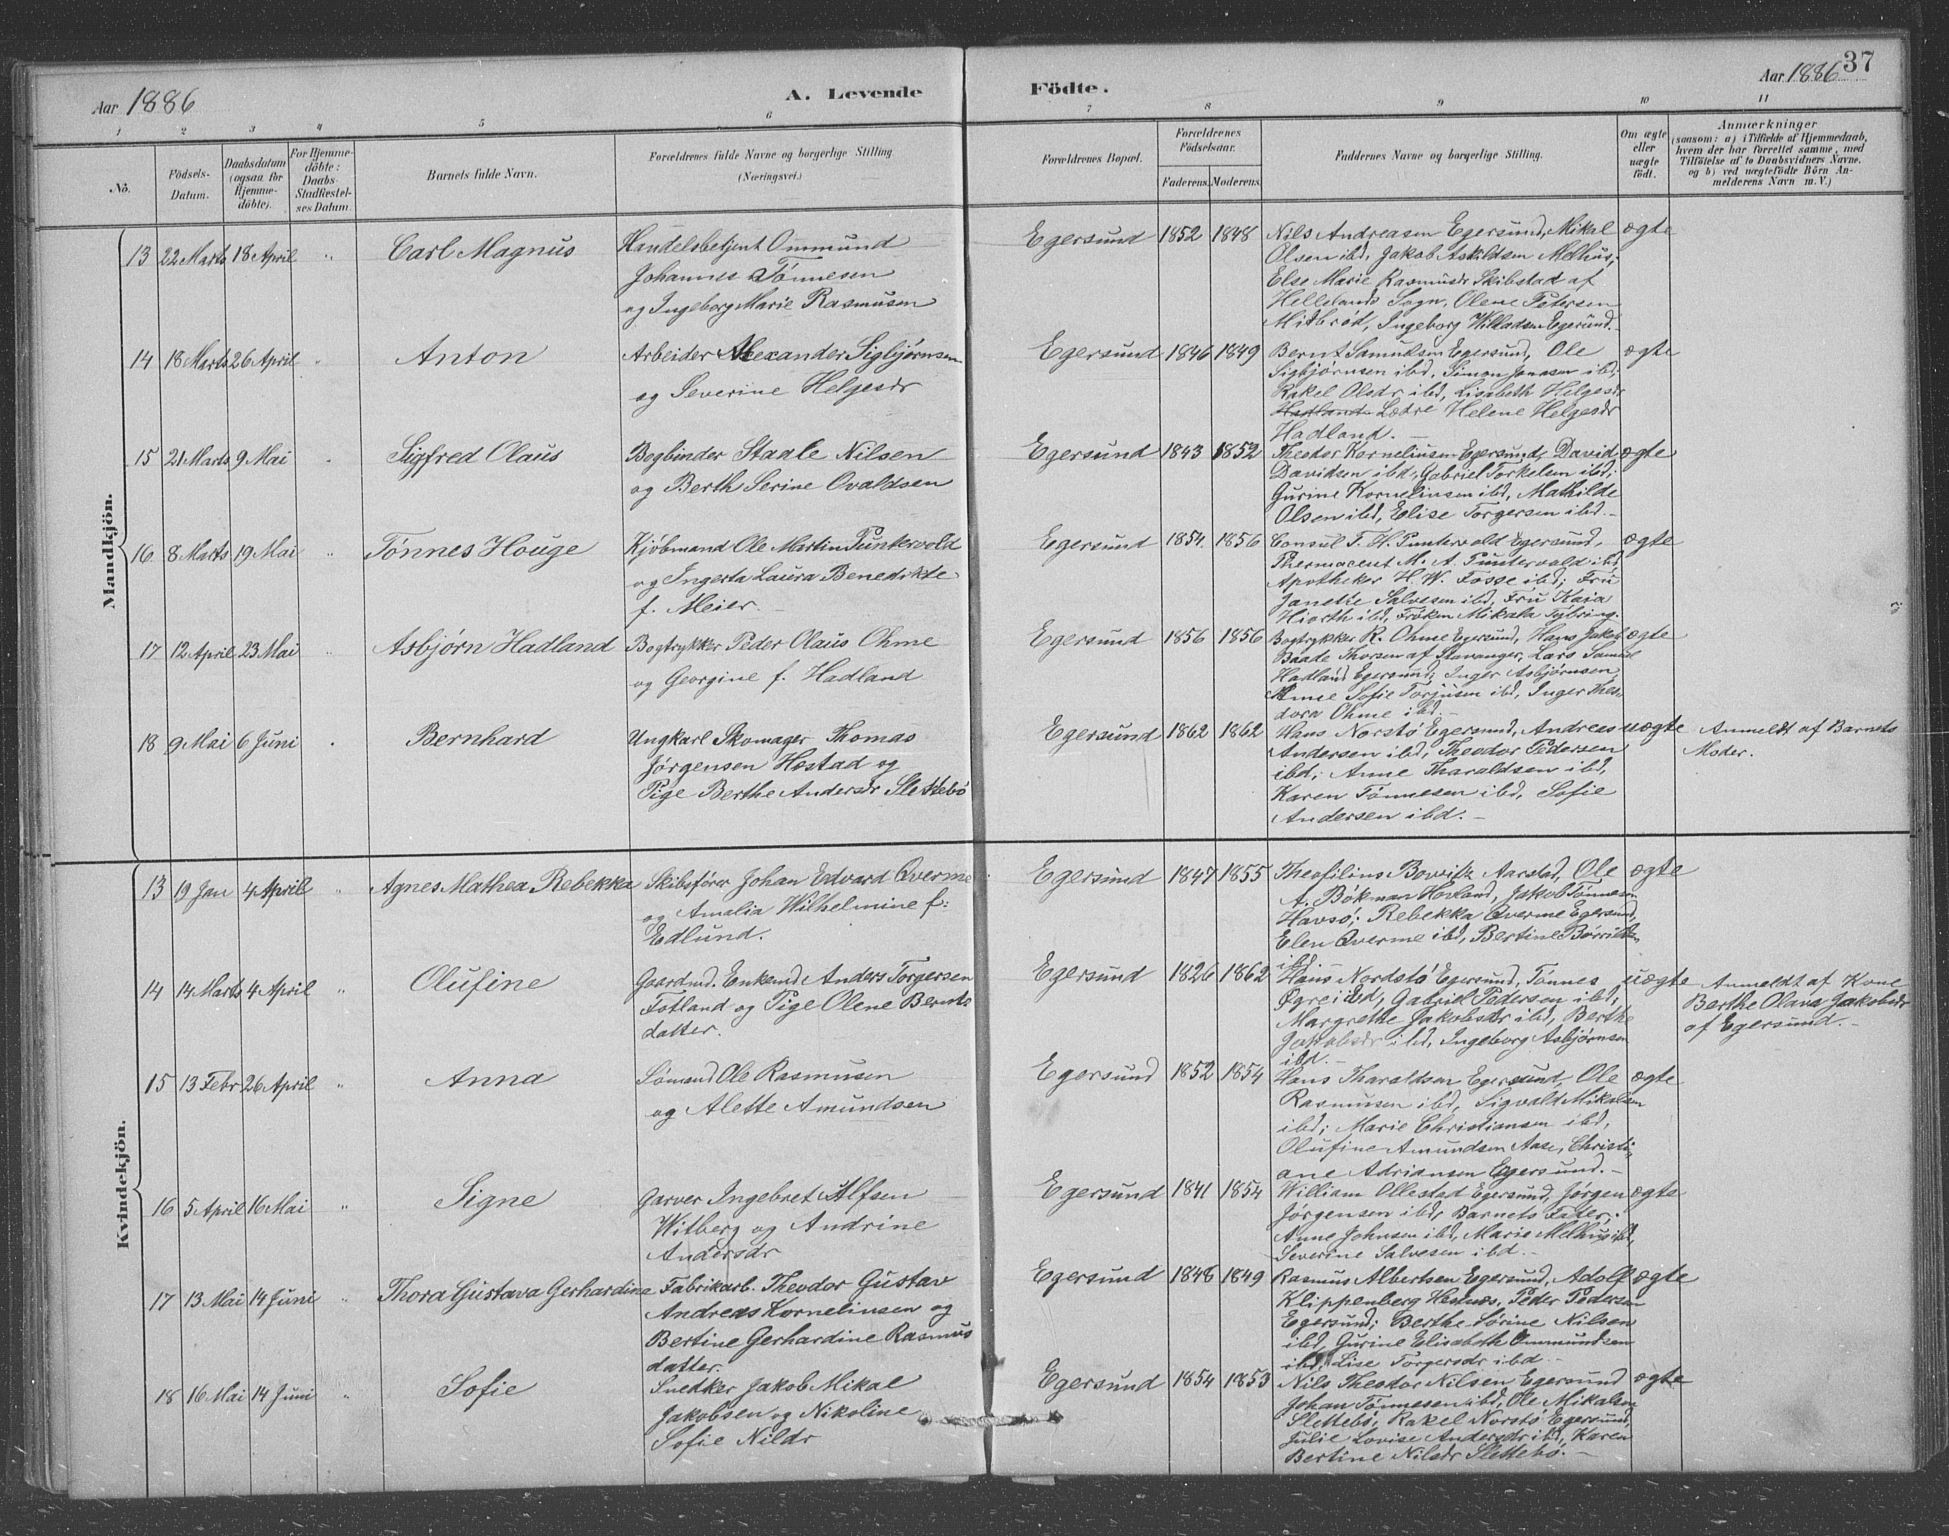 37
Aar 1886 A. Levende Födte. Aar 1886
1 2 3 4 5 6 7 8 9 10 11
No. Födsels-Datum. Daabsdatum (ogsaa for Hjemme-döbte). For Hjemme-döbte: Daabs-Stadfæstelses Datum. Barnets fulde Navn. Forældrenes fulde Navne og borgerlige Stilling (Næringsvei.) Forældrenes Bopæl. Forældrenes Födselsaar. Faderens. Moderens. Faddernes Navne og borgerlige Stilling. Om ægte eller uægte födt. Anmærkninger (saasom: a) i Tilfælde af Hjemmedaab, hvem der har forrettet samme, med Tilföielse af to Daabsvidners Navne, og b) ved uægtefödte Börn Anmelderens Navn m. V.)
Mandkjön.
13 22 Marts 18 April " Carl Magnus Handelsbetjent Ommund Egersund 1852 1848 Nils Andreasen Egersund, Mikal ægte
Johannes Tönnesen Olsen ibd, Jakob Askildsen Melhus,
og Ingeborg Marie Rasmusen Else Marie Rasmusdr Skibstad af
Hellelands Sogn, Olene Petersen
Mitbröd, Ingeborg Willadsen Egersund.
14 18 Marts 26 April " Anton Arbeider Alexander Sigbjørnsen Egersund 1846 1849 Bernt Samuelsen Egersund, Ole ægte
og Severine Helgesdr Sigbjørnsen ibd, Simon Jonasen ibd,
Rakel Olsdr ibd, Lisabeth Helgesdr
Hadland Lædre Helene Helgesdr
Hadland. –
15 21 Marts 9 Mai " Sigfred Olaus Bogbinder Staale Nilsen Egersund 1843 1852 Theodor Korneliusen Egersund, David ægte
og Berth Serine Ovaldsen Davidsen ibd, Gabriel Torkelsen ibd;
Gurine Korneliusen ibd, Mathilde
Olsen ibd, Elise Torgersen ibd. –
16 8 Marts 19 Mai " Tønnes Houge Kjøbmand Ole Martin Puntervold Egersund 1854. 1856 Consul T. H. Puntervold Egersund, ægte
og Ingerta Laura Benedikte Pharmaceut M. A. Puntervold ibd
f. Meier. Apotheker H. W. Fosse ibd; Fru
Janette Salvesen ibd, Fru Kaia
Hiorth ibd, Frøken Mikala Tybring.
17 12 April 23 Mai " Asbjørn Hadland Bogtrykker Peder Olaus Ohme Egersund 1856 1856 Bogtrykker R. Ohme Egersund, Hans Jakob ægte
og Georgine f. Hadland Baade Thorsen af Stavanger, Lars Samuel
Hadland Egersund; Inger Asbjørnsen,
Anne Sofie Torjusen ibd, Inger Theo
dora Ohme ibd. –
18 9 Mai 6 Juni " Bernhard Ungkarl Skomager Thomas Egersund 1862 1862 Hans Norstø Egersund, Andreas uægte Anmeldt af Barnets
Jørgensen Hæstad og Andersen ibd, Theodor Pedersen Moder.
Pige Berthe Andersdr Slettebø ibd; Anne Tharaldsen ibd,
Karen Tønnesen ibd, Sofie
Andersen ibd. –
Kvindekjön.
13 19 Jan 4 April " Agnes Mathea Rebekka Skibsfører Johan Edvard Qverme Egersund 1847 1855 Theofilius Aarstad, Ole ægte
og Amalia Wilhelmine f: A. Bökman Hovland, Jakob Tönnesen
Edlund. Havsö; Rebekka Qverme Egersund,
Elen Qverme ibd, Bertine
ibd. –
14 14 Marts 4 April " Olufine Gaardmd. Enkemd Anders Torgersen Egersund 1826 1862 Hans Nordstø Egersund, Tønnes uægte Anmeldt af Kone
Fotland og Pige Olene Bernts Øgrei ibd, Gabriel Pedersen ibd; Berthe Olava Jakobsdr
datter. Margrethe Jakobsdr ibd, Berthe af Egersund. –
Jakobsdr ibd, Ingeborg Asbjørnsen
ibd. –
15 13 Febr 26 April " Anna Sømand Ole Rasmusen Egersund 1852 1854 Hans Tharaldsen Egersund, Ole ægte
og Alette Amundsen Rasmusen ibd, Sigvald Mikalsen
ibd; Marie Christiansen ibd,
Olufine Amundsen Aase, Christi
ane Adriansen Egersund. –
16 5 April 16 Mai " Signe Garver Ingebret Alfsen Egersund 1841 1854 William Ollestad Egersund, Jørgen ægte
Witberg og Andrine Jørgensen ibd, Barnets Fader;
Andersdr Anne Johnsen ibd, Marie Melhus ibd,
Severine Salvesen ibd. –
17 13 Mai 14 Juni " Thora Gustava Gerhardine Fabrikarb. Theodor Gustav Egersund 1848 1849 Rasmus Albertsen Egersund, Adolf ægte
Andreas Korneliusen og Klippenberg Hestnes, Peder Pedersen
Bertine Gerhardine Rasmus Egersund; Berthe Sørine Nilsen
datter. ibd, Gurine Elisabeth Ommundsen
ibd, Lise Torgersdr ibd –
18 16 Mai 14 Juni " Sofie Snedker Jakob Mikal Egersund 1854 1853 Nils Theodor Nilsen Egersund ægte
Jakobsen og Nikoline Johan Tønnesen ibd, Ole Mikalsen
Sofie Nilsdr Slettebø, Rakel Norstø Egersund,
Julie Lovise Andersdr ibd, Karen
Bertine Nilsdr Slettebø. –